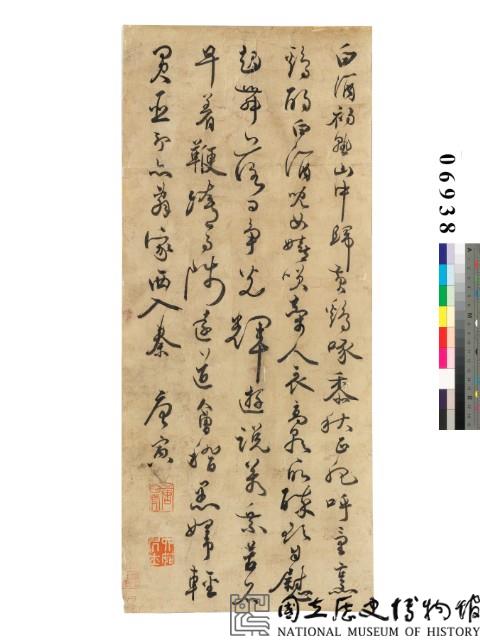 白酒初熟山中歸黃雞啄黍秋正肥呼童烹
雞酌白酒兒女嬉咲牽人衣高歌取醉欲自慰
起舞落日爭光輝遊說萬乘苦不
早着鞭跨馬涉遠道會稽愚婦輕
買臣余亦辭家西入秦 唐寅
06938
國立歷史博物館
NATIONAL MUSEUM OF HISTORY